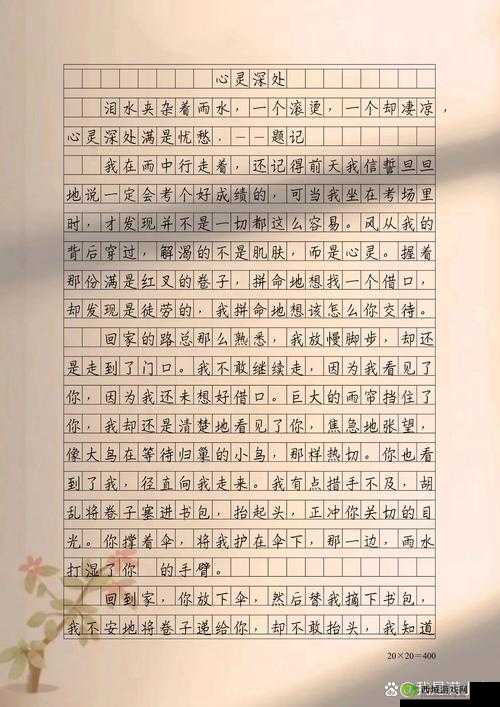 心灵深处
泪水夹杂着雨水，一个滚烫，一个却凄凉，
心灵深处满是忧愁．——题记
我在雨中行走着，还记得前天我信誓旦旦
地说一定会考个好成绩的，可当我坐在考场里
时，才发现并不是一切都这么容易。风从我的
背后穿过，解渴的不是肌肤，而是心灵。握着
那份满是红叉的卷子，拼命地想找一个借口，
却发现是徒劳的，我拼命地想该怎么你交待。
回家的路总那么熟悉，我放慢脚步，却还
是走到了门口。我不敢继续走，因为我看见了
你，因为我还未想好借口。巨大的雨帘挡住了
你，我却还是清楚地看见了你，焦急地张望，
像大鸟在等待归巢的小鸟，那样热切。你也看
到了我，径直向我走来。我有点措手不及，胡
乱将卷子塞进书包，抬起头，正冲你关切的目
光。你撑着伞，将我护在伞下，那一边，雨水
打湿了你 的手臂。
回到家，你放下伞，然后替我摘下书包，
我不安地将卷子递给你，却不敢抬头，我知道
20×20=400
西城游戏网